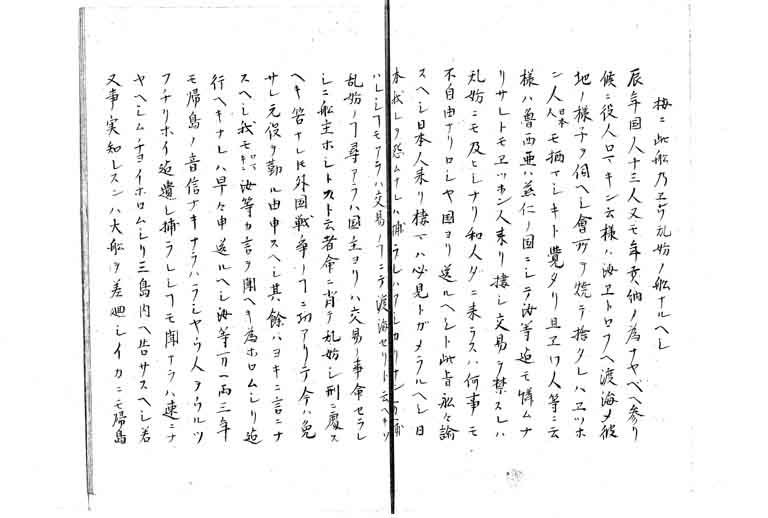 按ニ此船乃ヱゾ乱妨ノ船ナルヘシ
辰年国人十三人又モ年貢納ノ為ナヤベヘ参リ
候ニ役人ロマキン云様ハ汝ヱトロフヘ渡海メ彼
地ノ様子ヲ伺ヘシ會所ヲ焼テ捨タレハヱツホ
ン人人日本モ栖マシキト覺タリ且ヱゾ人等ニ云
様ハ魯西亜ハ慈仁ノ国ニシテ汝等迠モ憐ムナ
リサレトモヱツホン人来リ棲シ交易ヲ禁スレハ
乱妨ニモ及ヒシナリ和人タニ来ラスハ何事モ
不自由ナリロシヤ国ヨリ送ルヘシト此旨船々諭
スヘシ日本人来リ棲マハ必見トガメラルヘシ日
本我レヲ恐ムナレハ捕ラレ
ハレシテモアラハ交易ノヿニテ渡海セリト云ヘキソ
乱妨ノヿ尋アラハ国主ヨリハ交易ノ事命セラレ
シニ船主ホシトストト云者命ニ背テ乱妨シ刑ニ處ス
ヘキ筈ナレ𪜈外国戦争ノヿニ功アリテ今ハ免
サレ元役ヲ勤ル由申スヘシ其餘ハヨキニ言ニナ
スヘシ我モロマキン汝等カ言ヲ聞ヘキ為ホロムシリ迠
行ヘキナレハ早々申送ルヘシ汝等万一両三年
モ帰島ノ音信ナキナラハラシヤウ人ヲウルツ
フチリホイ迠遺シ捕ラレシヿモ聞アラハ速ニナ
ヤヘシムチヨイホロムシリ三島内ヘ告サスヘシ若
又事実知レスンハ大船ヲ差廻シイカニモ帰島